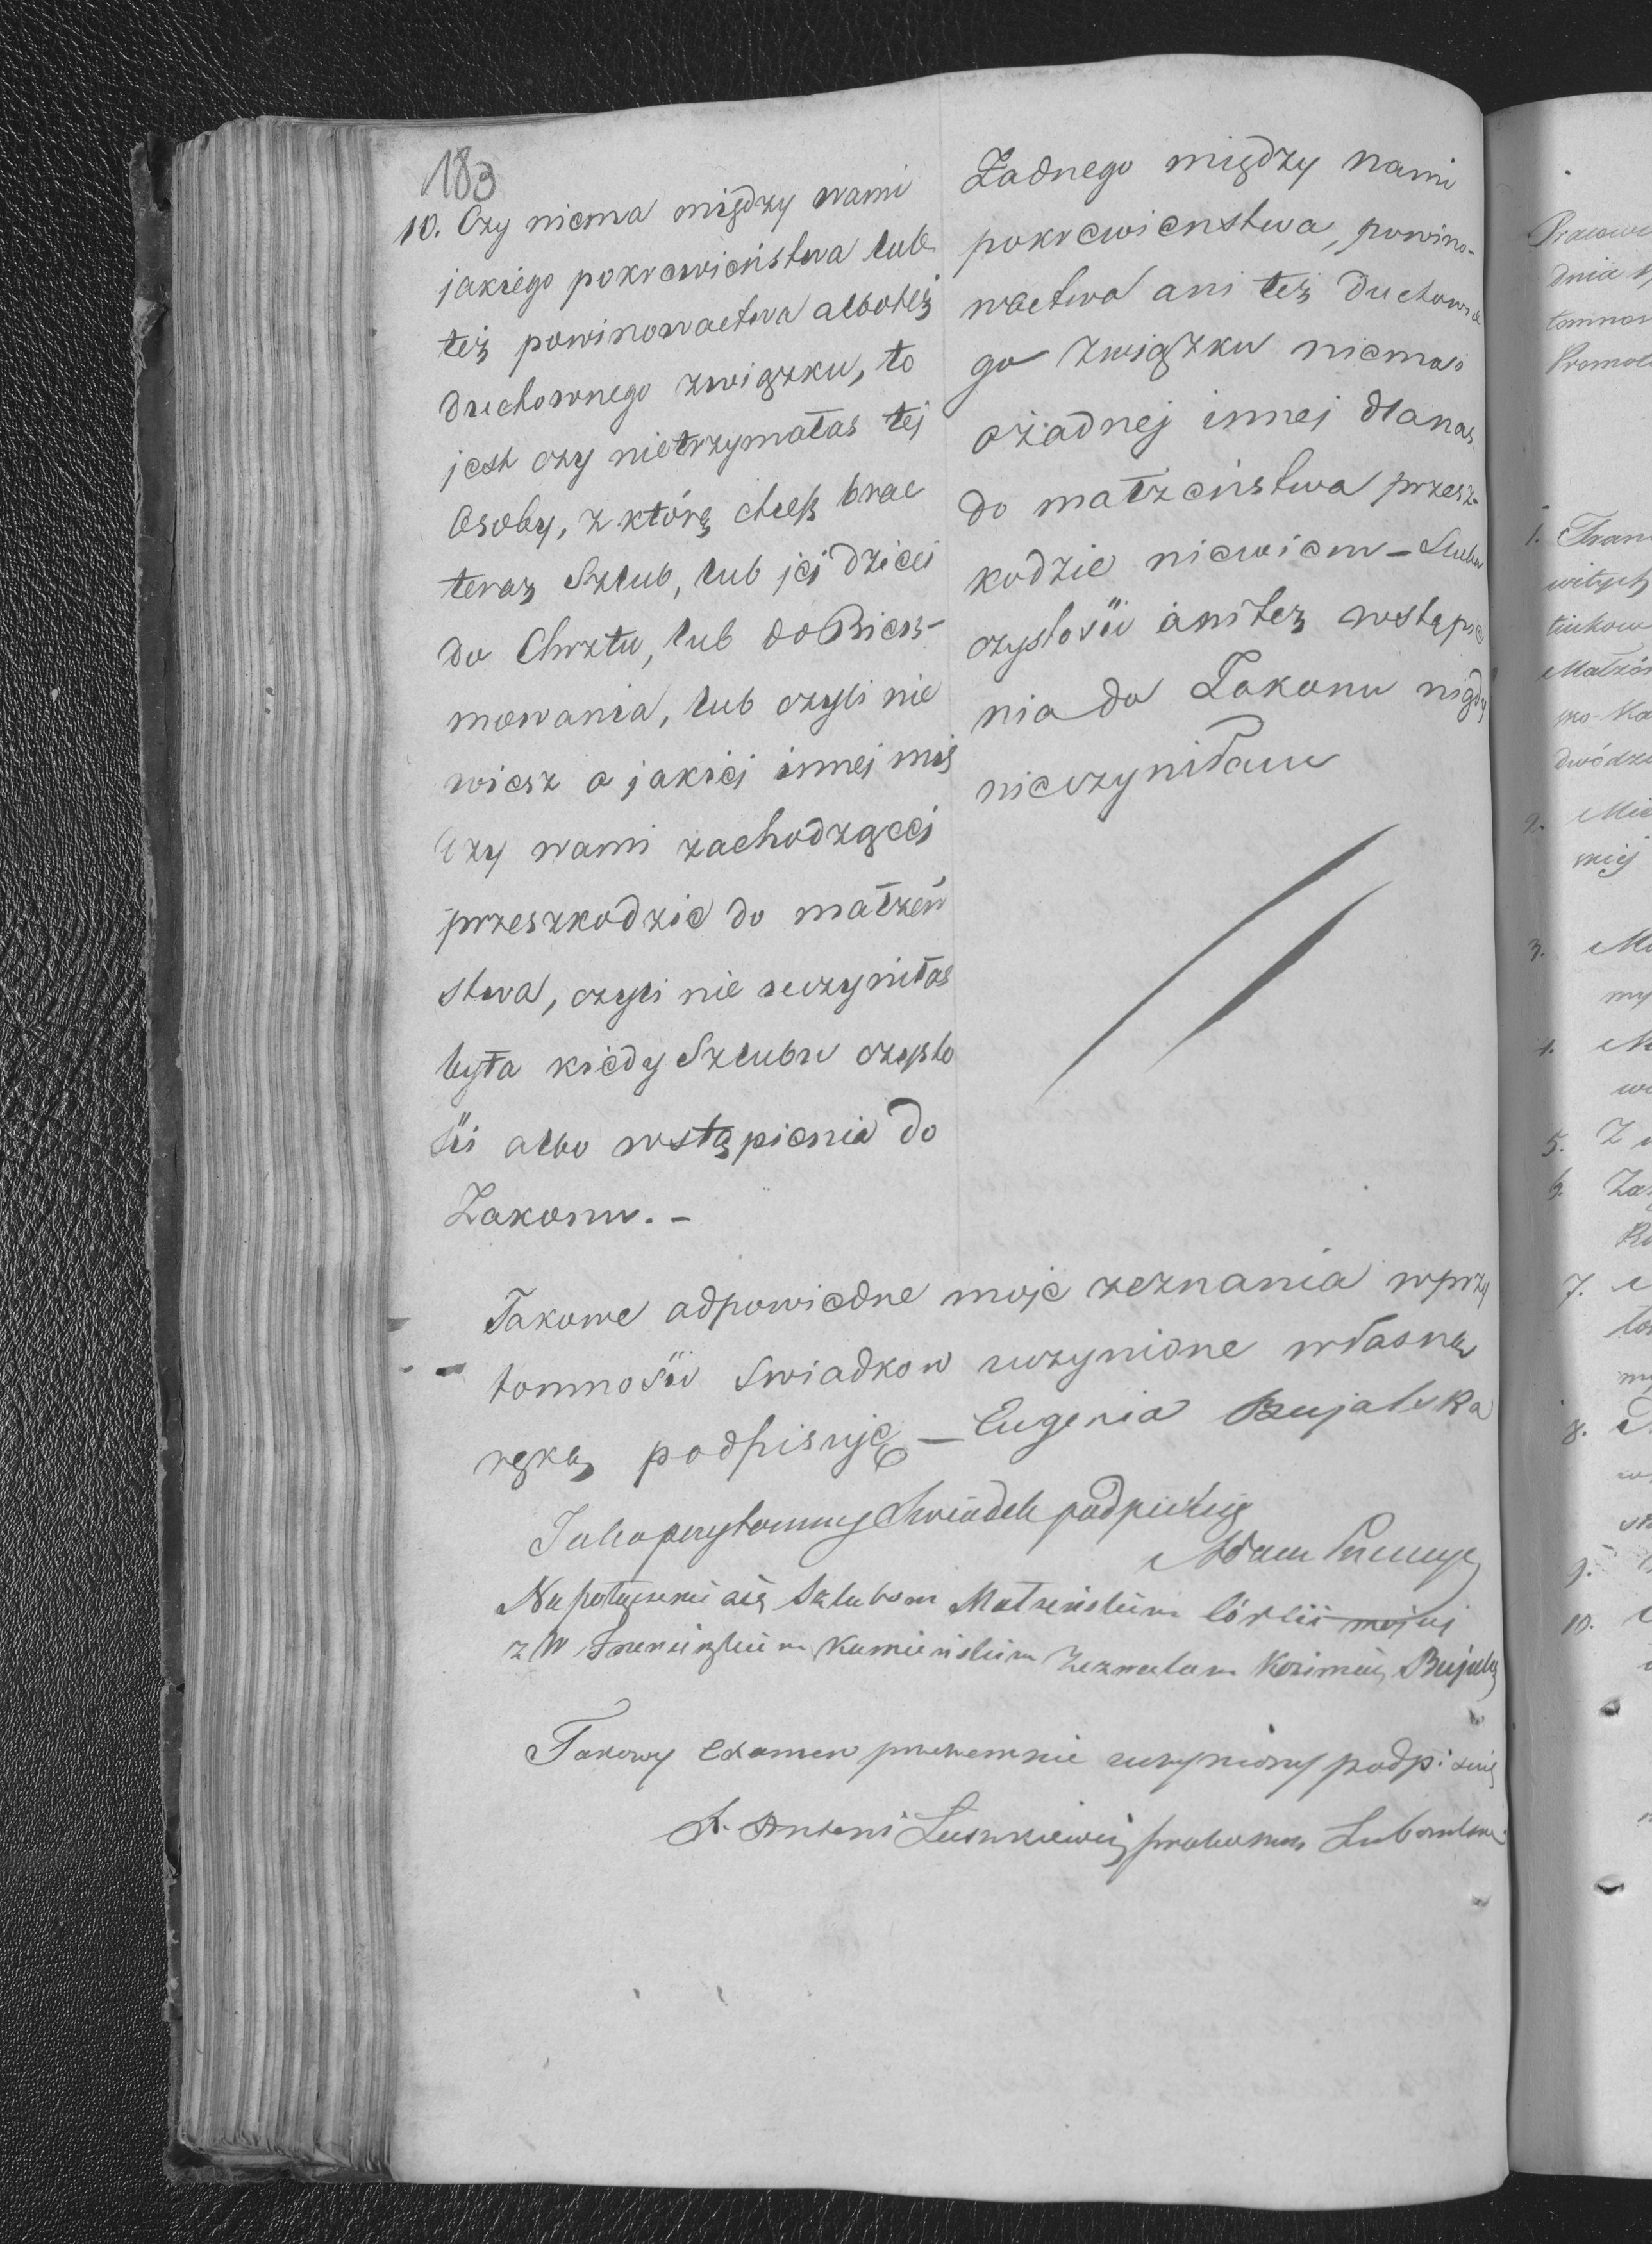 183
10. Czy niema między wami
jakiego pokrewieństwa lub
też powinowactwa alboteż
duchownego związku, to
jest czy nietrzymałas tej
Osoby, z którą chcesz brac
teraz Szlub, lub jej dzieci
do Chrztu, lub do Bierz-
mowania, lub czyli nie
wiesz o jakiej innej mię
dzy wami zachodzącej
przeszkodzie do małżeń
stwa, czyli nie uczyniłas
była kiedy Szlubu czysto
ści albo wstąpienia do
Zakonu. -
Żadnego między nami
pokrewienstwa, powino-
wactwa ani też duchowne
go związku niema i
o żadnej innej dla nas
do małżeństwa przesz-
kodzie niewiem - Slubu
czystości ani też wstąpie
nia do Zakonu nigdy
nieuczyniłam
Takowe odpowiedne moje zeznania w przy
tomności swiadkow uczynione własną
ręką podpisuję - Eugenia Bujalska
Jako przytomny Swiadek podpisuię
Adam
Na połączenie się Szlubem Małżeńskim Córki mojej
z W Franciszkiem Kamieńskim Zezwalam Bujalsk
Takowy Examen przezemnie uczyniony podpisuię
X. Antoni Proboszcz